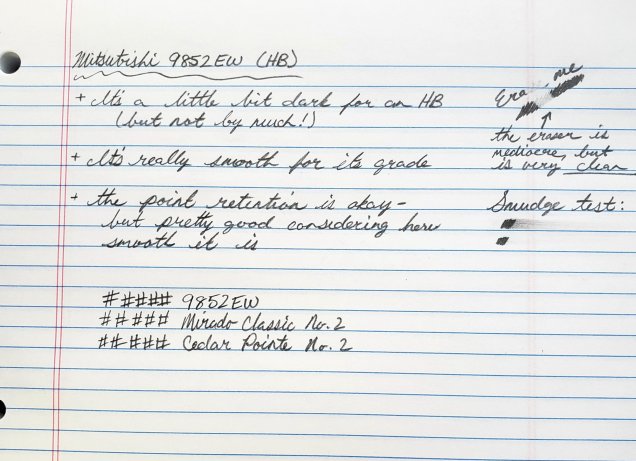 Mitsubishi 9852EW (HB)
+ It's a little bit dark for an HB
(but not by much!)
+ It's really smooth for its grade
+ the point retention is okay-
but pretty good considering how
smooth it is
##### 9852EW
##### Mirado Classic No. 2
##### Cedar Pointe No. 2
Era me
the eraser is
mediocre, but
is very clean
Smudge test: